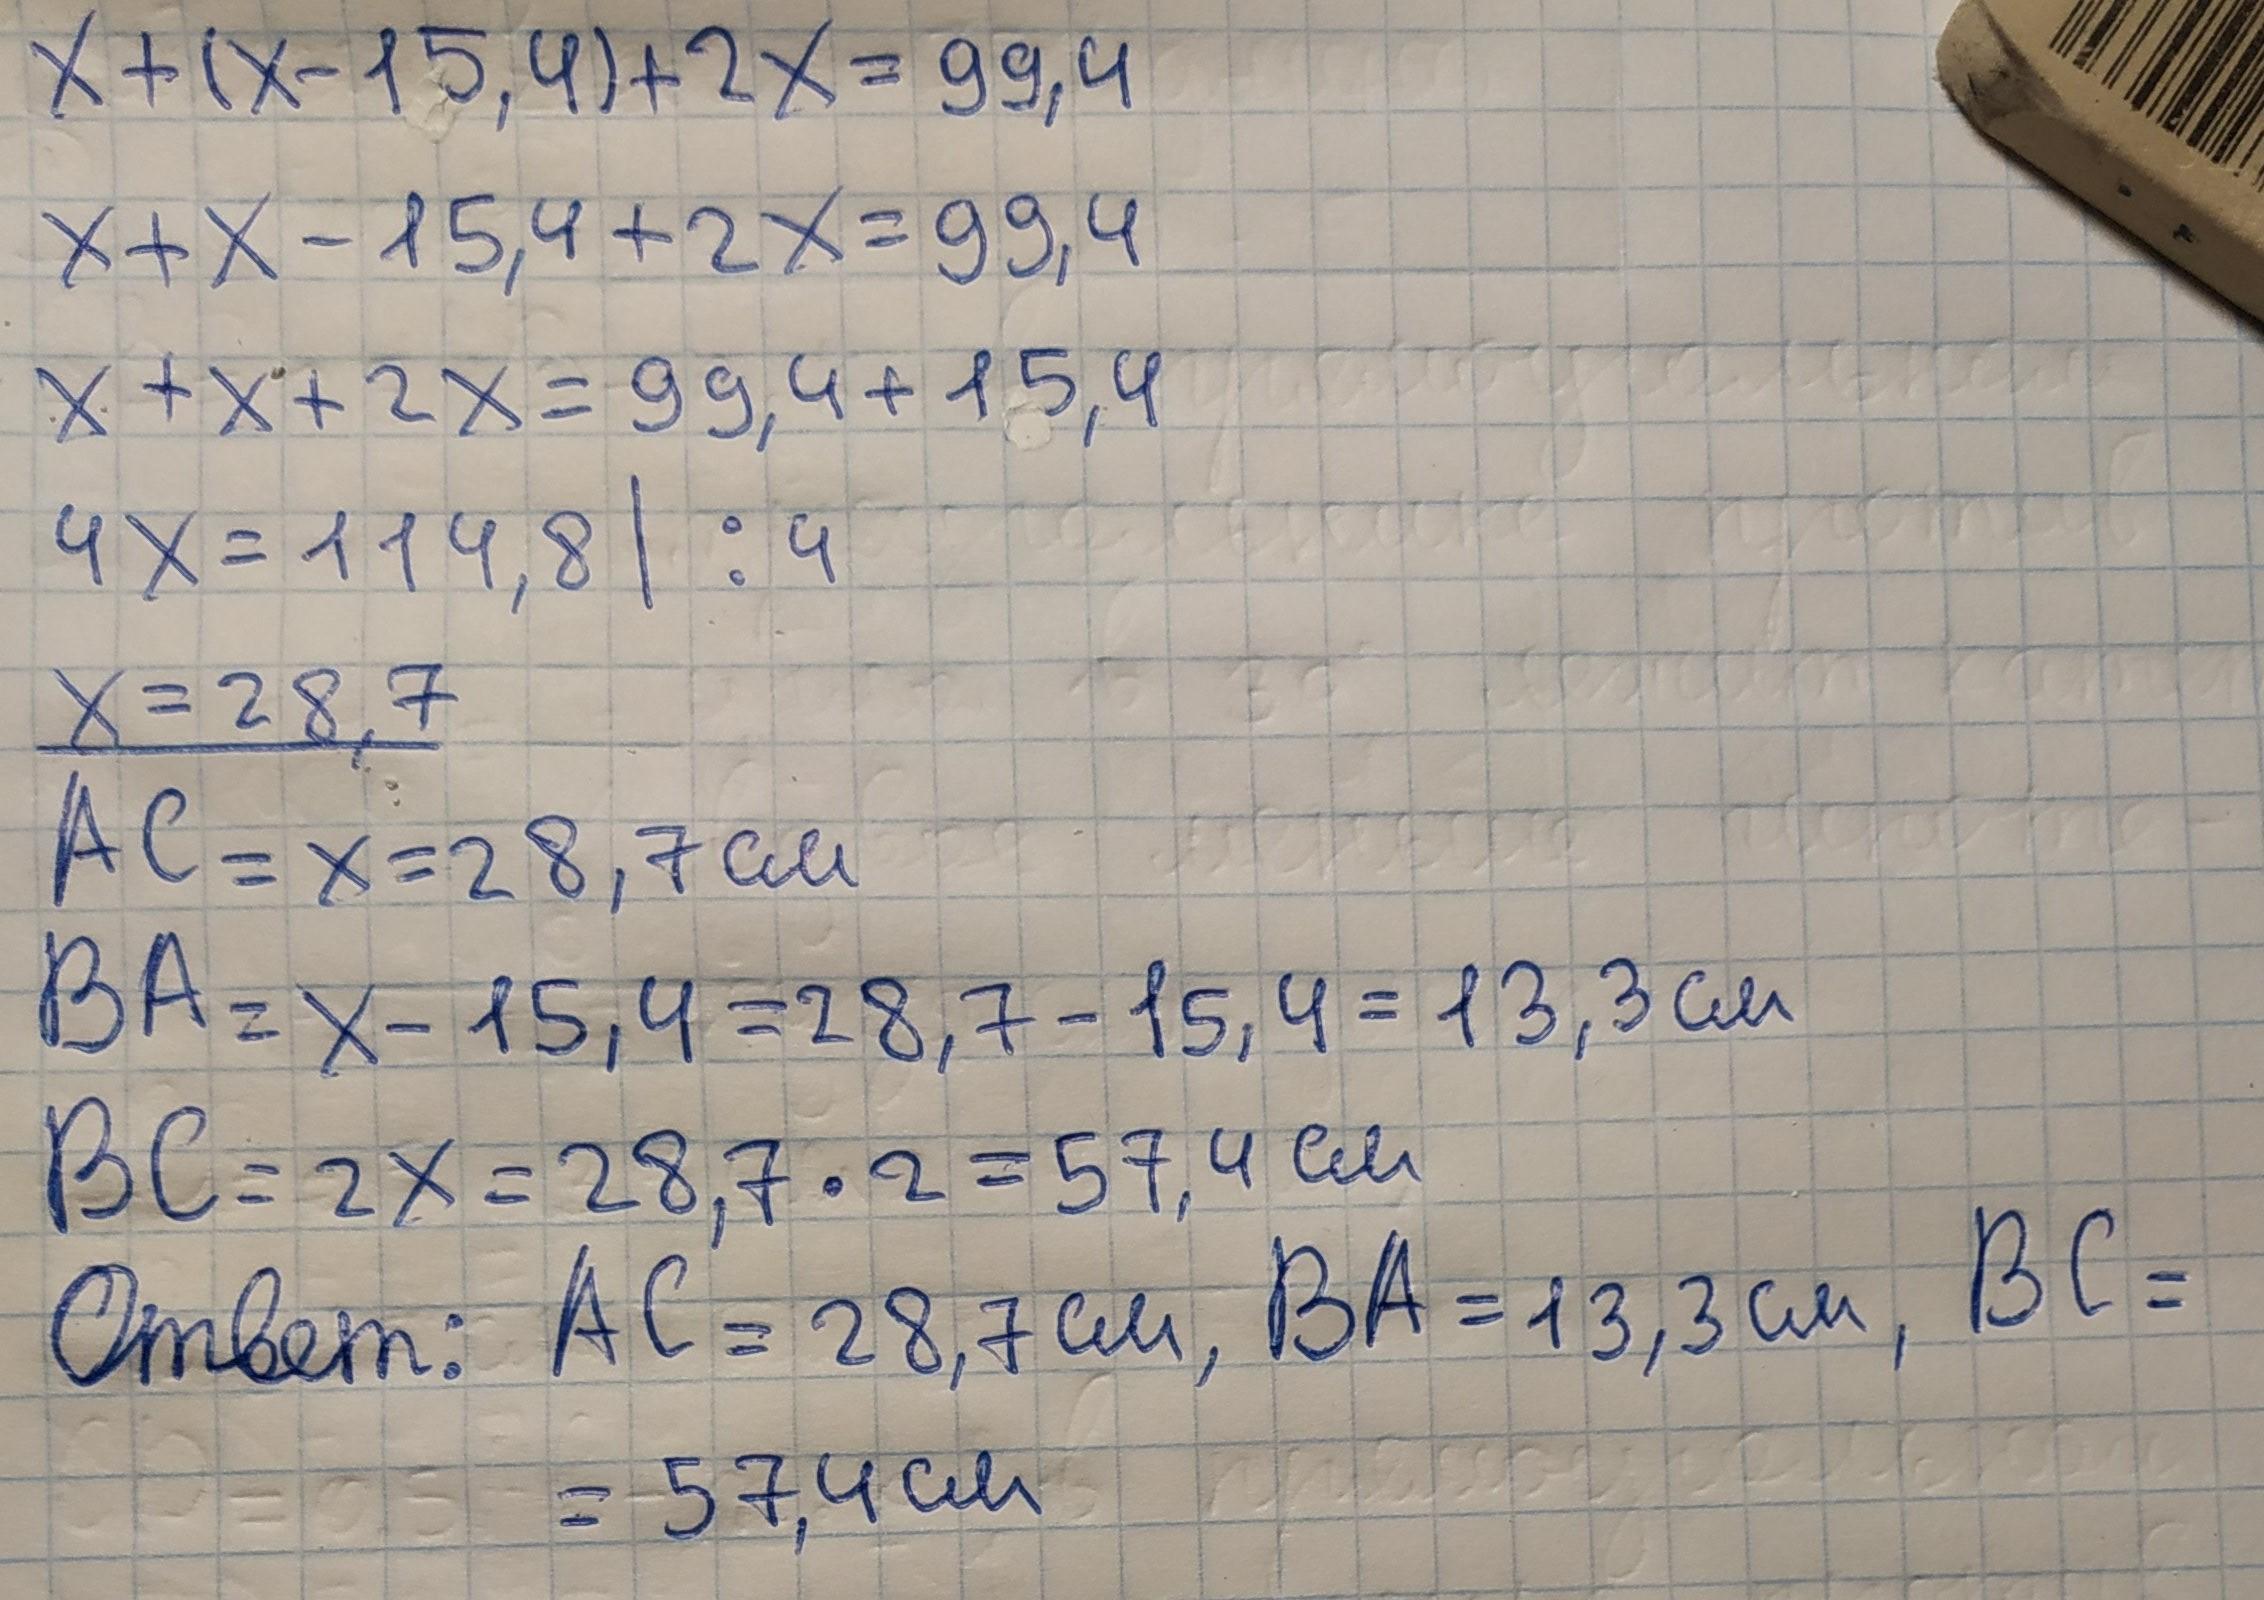 x+(x-15,4)+2x=99,4
x+x-15,4+2x=99,4
x+x+2x=99,4+15,4
4x=114,8| :4
x=28,7
AC=x=28,7см
BA=x-15,4=28,7-15,4=13,3см
BC=2x=28,7·2=57,4см
Ответ: AC=28,7см, BA=13,3см, BC=
=57,4см